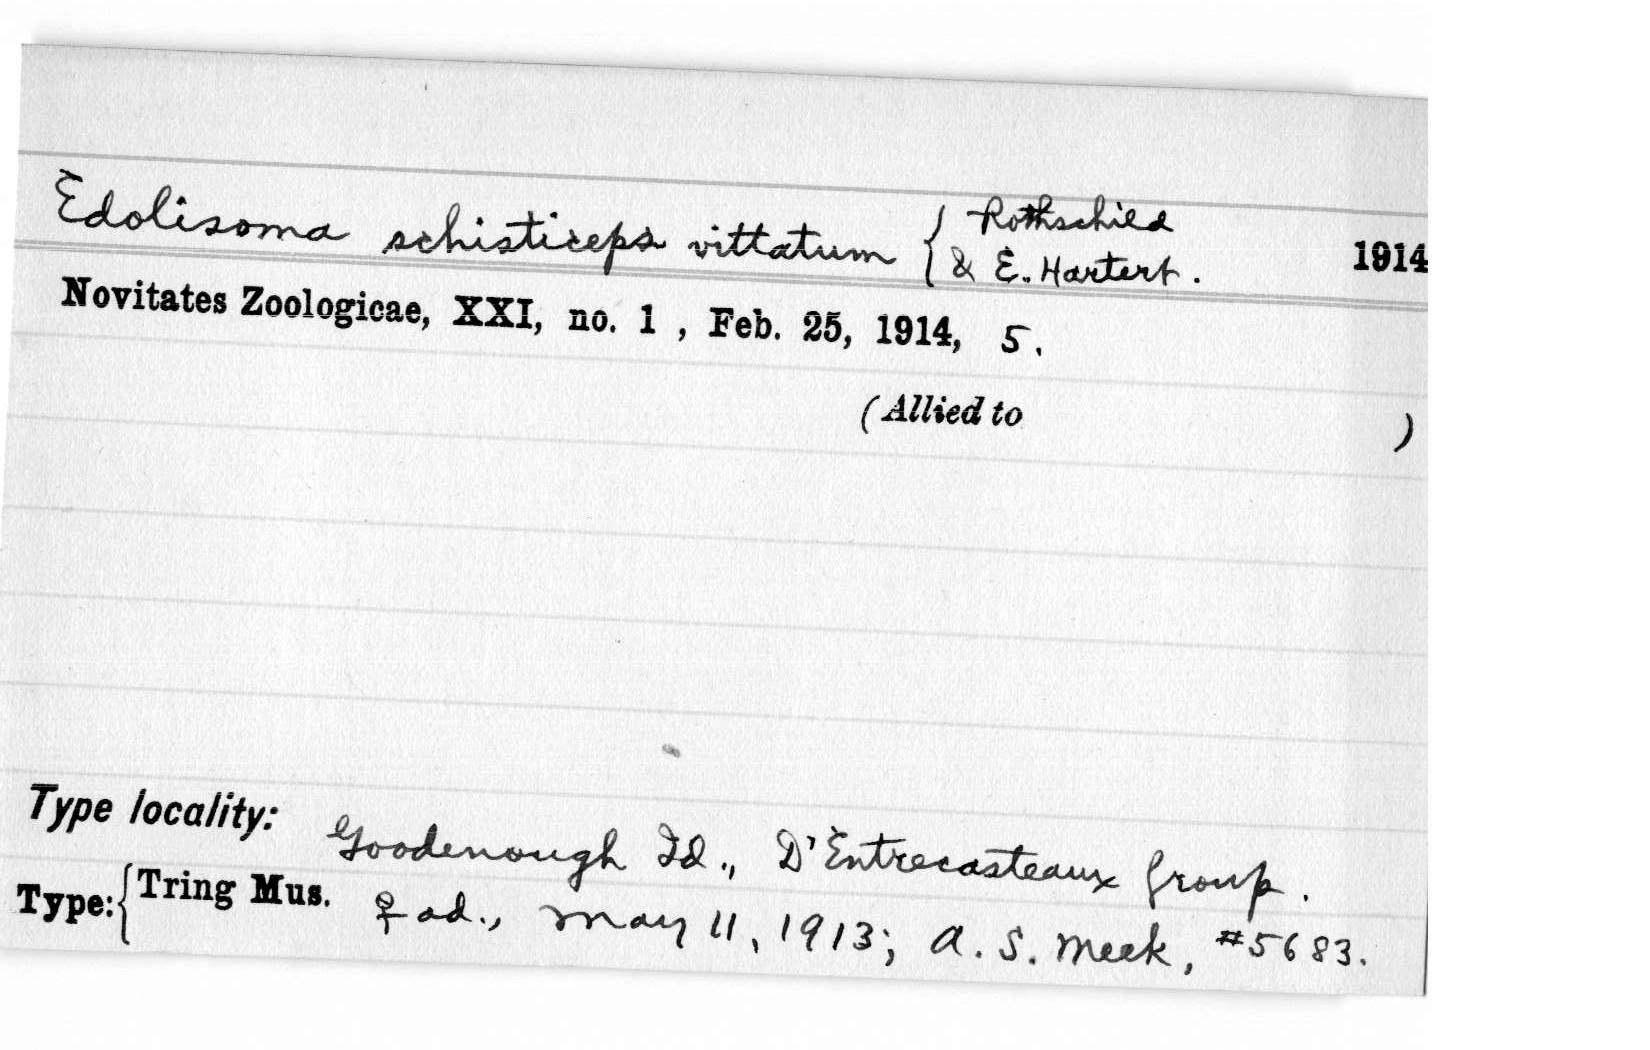 Edolisoma schisticeps vittatum { Rothschild & E. Hartert. 1914
Novitates Zoologicae, XXI, no. 1, Feb. 25, 1914, 5.
(Allied to )
Type locality: Goodenough Id., D'Entrecasteaux Group.
Type: { Tring Mus. ♀ ad., May 11, 1913; A. S. Meek, #5683.